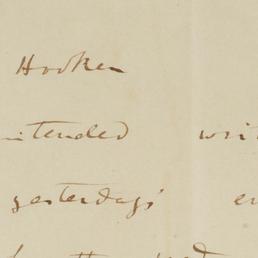 Hooker
intended wri
yesterdays' en